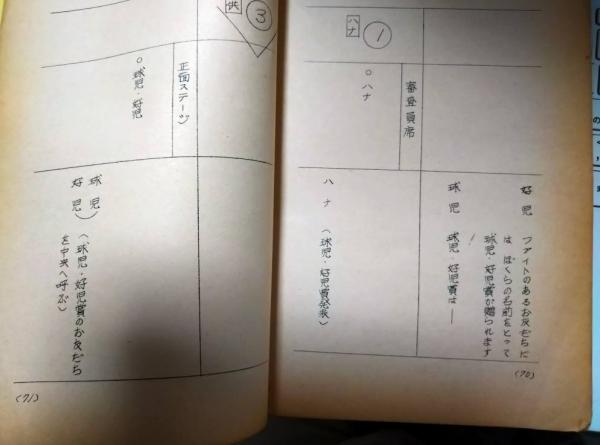 好児 ファイトのあるお友だちに
は ぼくらの名前をとって
球児・好児賞が贈られます
球児 球児・好児賞は―
審査員席
① ハナ
○ハナ
ハナ (球児・好児賞発表)
(70)
③ 供
正面ステージ
○球児・好児
球児
好児) (球児・好児賞のお友だち
を中央へ呼ぶ)
(71)